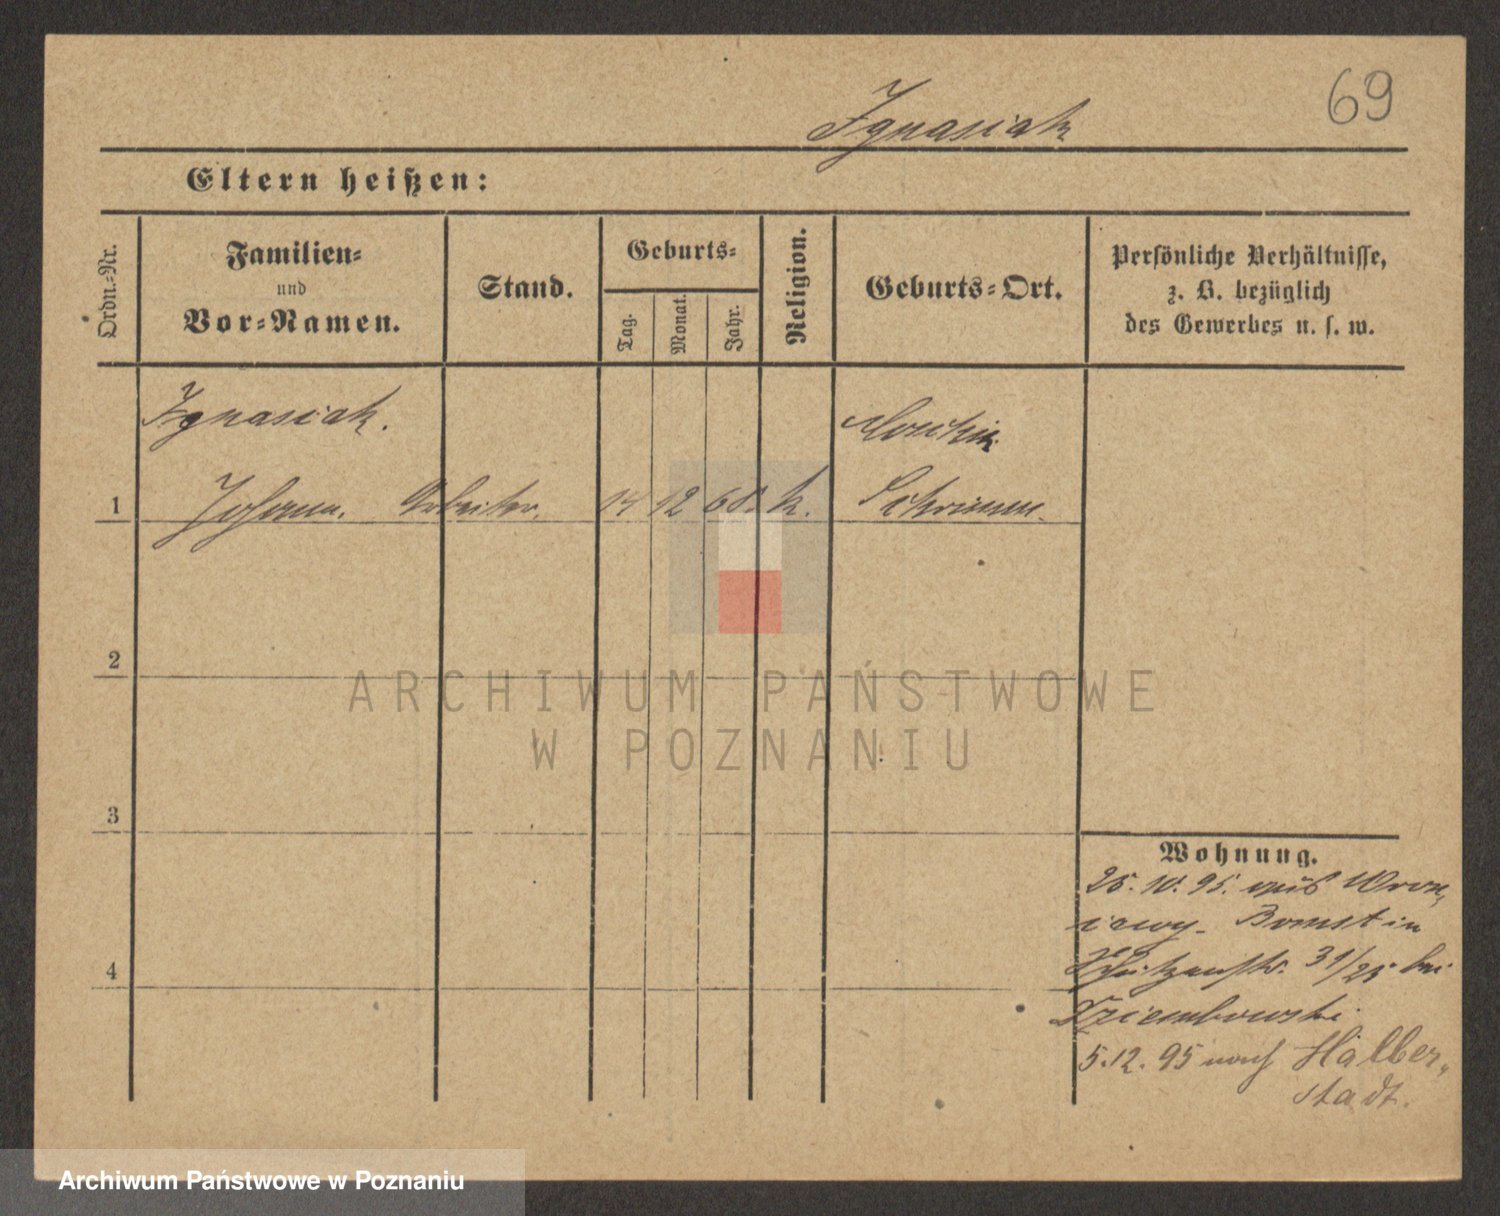 69
Ignasiak
Eltern heißen:
Ordn.-Nr.
Familien-
und
Vor-Namen.
Stand.
Geburts-
Tag.
Monat.
Jahr.
Religion.
Geburts-Ort.
Persönliche Verhältnisse,
z. B. bezüglich
des Gewerbes u. s. w.
Ignasiak.
1 Johann. Arbeiter. 14 12 68. k. Schrimm.
2
3
4
Wohnung.
25. 10. 95. aus Wron,
iawy. Bomst in
31/25 bei
Dziembowski
5.12.95 nach Halber,
stadt.
ARCHIWUM PAŃSTWOWE
W POZNANIU
Archiwum Państwowe w Poznaniu